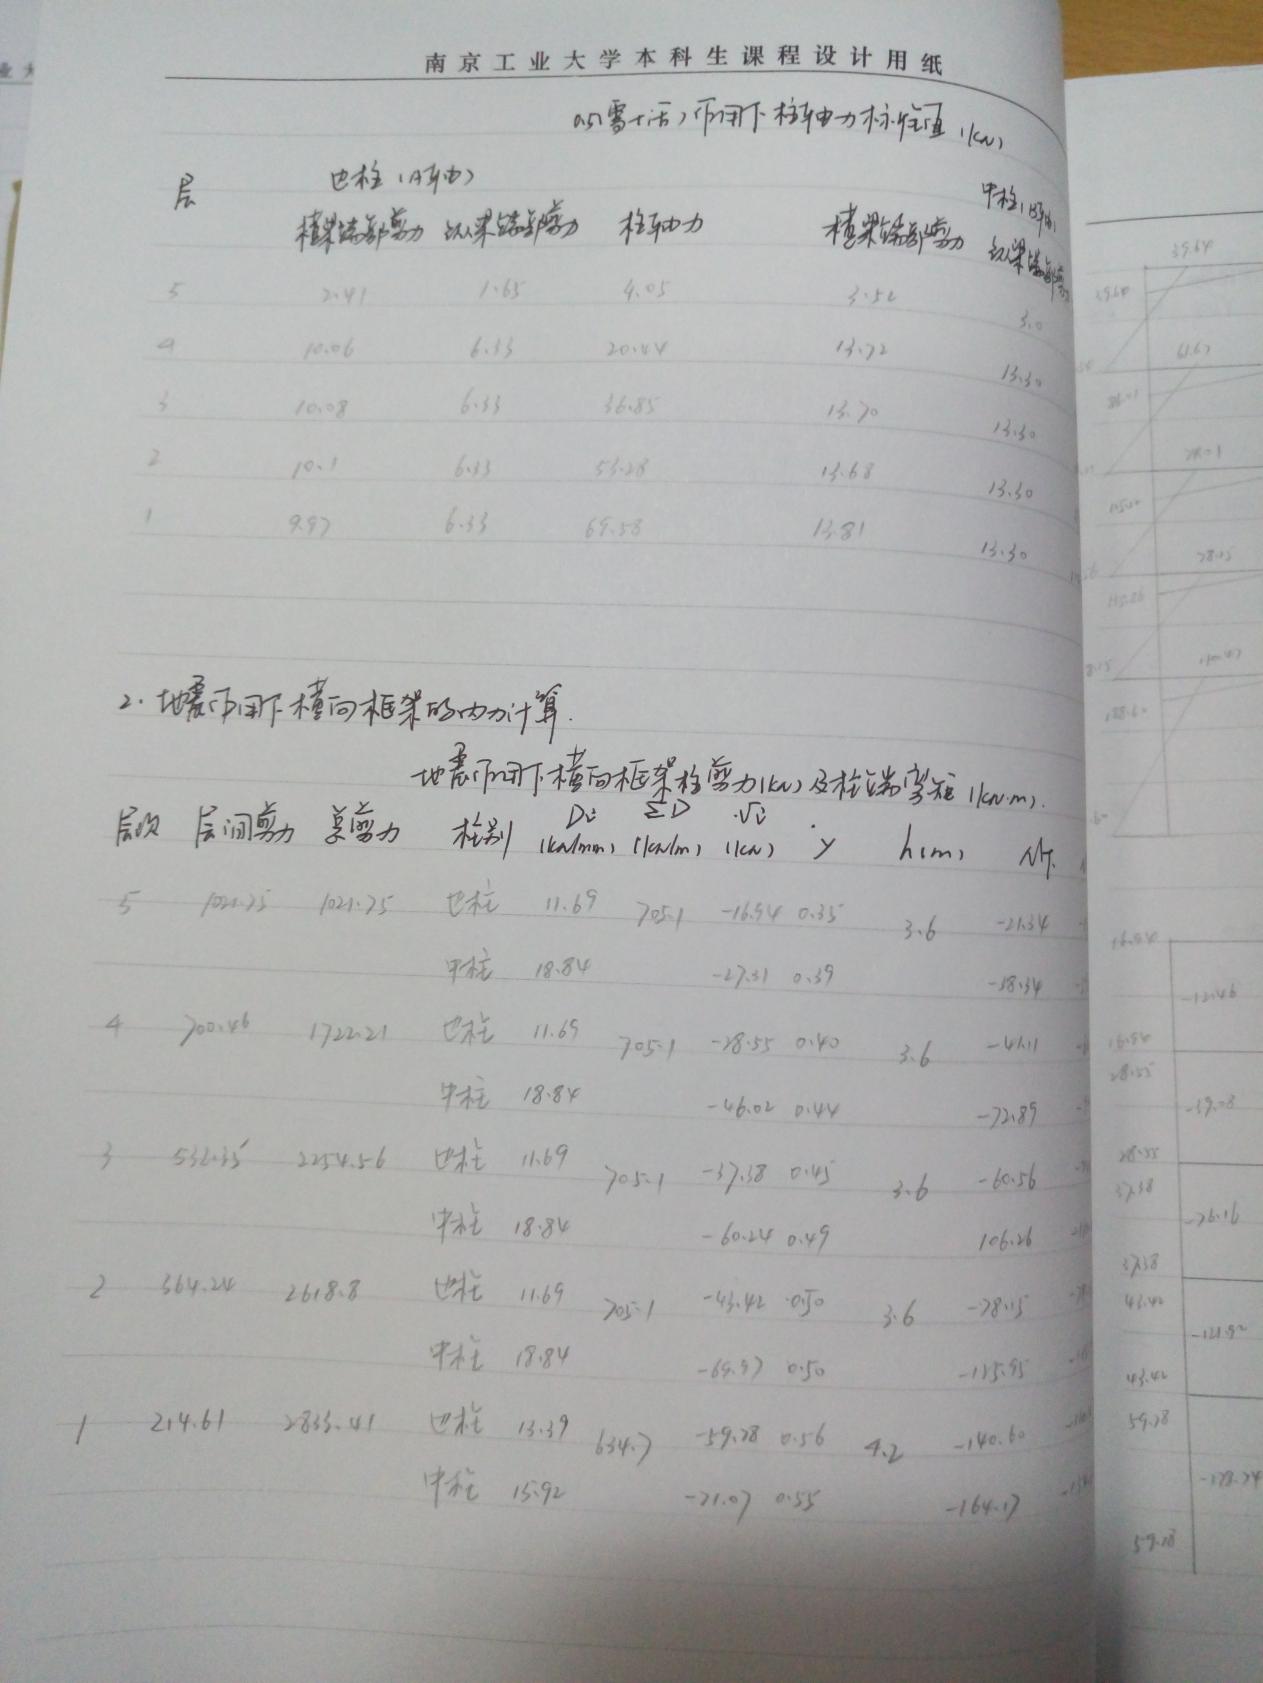 南京工业大学本科生课程设计用纸
0.5(雪+活)作用下柱轴力标准值(kN)
层 边柱(A轴) 中柱(B轴)
横梁端部剪力 纵梁端部剪力 柱轴力 横梁端部剪力 纵梁端部剪力
5 2.41 1.65 4.05 3.52 3.0
4 10.06 6.33 20.44 13.72 13.30
3 10.08 6.33 36.85 13.70 13.30
2 10.1 6.33 53.28 13.68 13.30
1 9.97 6.33 69.58 13.81 13.30
2.地震作用下横向框架的内力计算.
地震作用下横向框架柱剪力(kN)及柱端弯矩(kN·m).
层次 层间剪力 总剪力 柱别 Di (kN/mm) ΣD (kN/m) Vi (kN) y h(m)
5 1021.75 1021.75 边柱 11.69 705.1 -16.94 0.35 3.6 -21.34
中柱 18.84 -27.31 0.39 -38.34
4 700.46 1722.21 边柱 11.69 705.1 -28.55 0.40 3.6 -41.11
中柱 18.84 -46.02 0.44 -72.89
3 532.35 2254.56 边柱 11.69 705.1 -37.38 0.45 3.6 -60.56
中柱 18.84 -60.24 0.49 106.26
2 364.24 2618.8 边柱 11.69 705.1 -43.42 0.50 3.6 -78.15
中柱 18.84 -69.97 0.50 -125.95
1 214.61 2833.41 边柱 13.39 634.7 -59.78 0.56 4.2 -140.60
中柱 15.92 -71.07 0.55 -164.17
39.64
39.64
61.67
78.15
16.94
-12.46
16.94
28.55
-39.08
28.55
37.38
-76.16
37.38
43.42
-121.92
43.42
59.78
-178.74
59.78